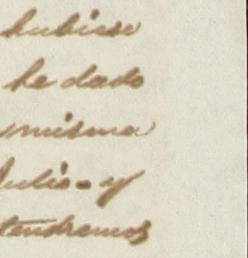 hubiese
he dado
misma
Julio - y
tendremos